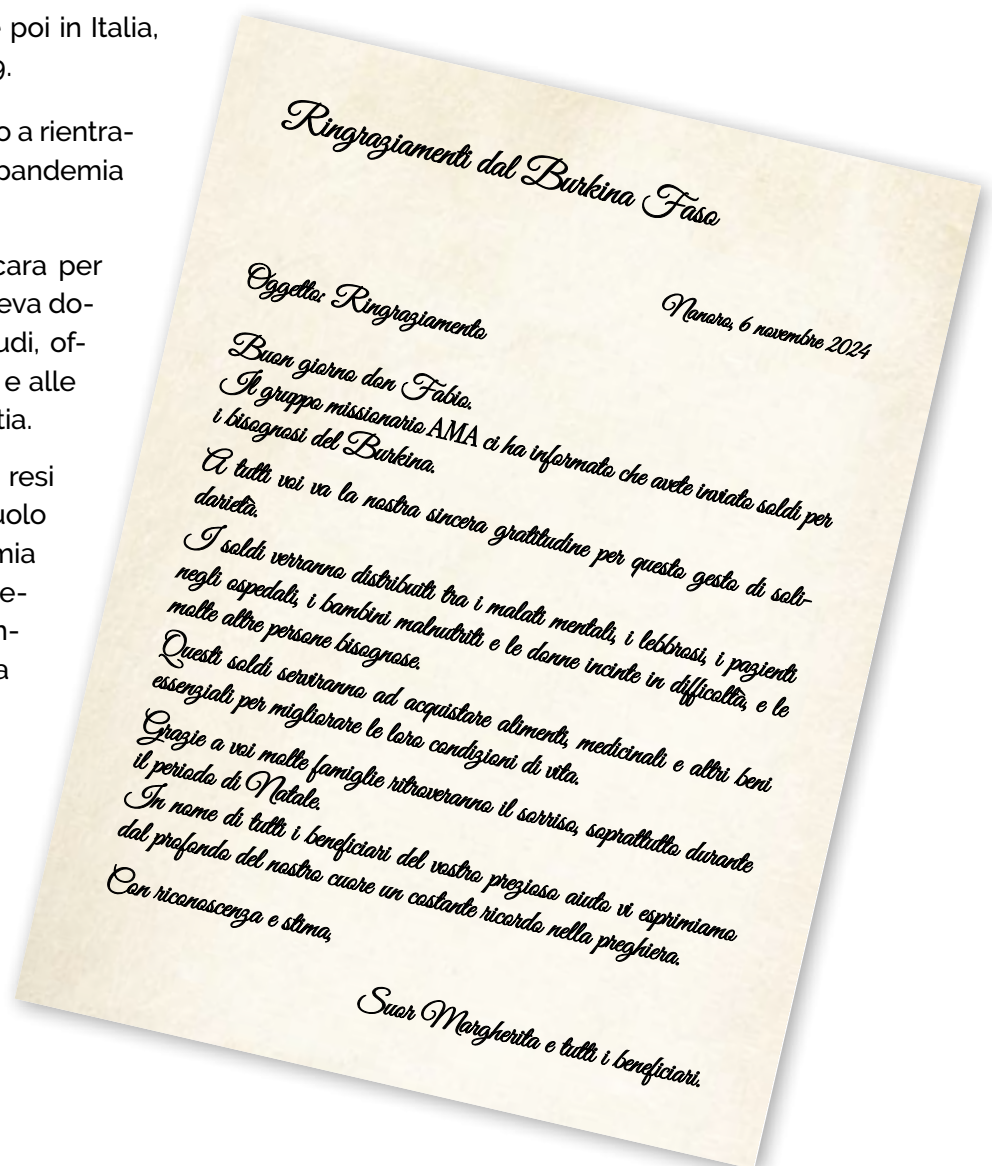 poi in Italia,
9.
o a rientra-
pandemia
cara per
eva do-
udi, of-
e alle
tia.
resi
uolo
mia
e-
n-
a
Ringraziamenti dal Burkina Faso
Nanoro, 6 novembre 2024
Oggetto: Ringraziamento
Buon giorno don Fabio.
Il gruppo missionario AMA ci ha informato che avete inviato soldi per
i bisognosi del Burkina.
A tutti voi va la nostra sincera gratitudine per questo gesto di soli-
darietà.
I soldi verranno distribuiti tra i malati mentali, i lebbrosi, i pazienti
negli ospedali, i bambini malnutriti e le donne incinte in difficoltà, e le
molte altre persone bisognose.
Questi soldi serviranno ad acquistare alimenti, medicinali e altri beni
essenziali per migliorare le loro condizioni di vita.
Grazie a voi molte famiglie ritroveranno il sorriso, soprattutto durante
il periodo di Natale.
In nome di tutti i beneficiari del vostro prezioso aiuto vi esprimiamo
dal profondo del nostro cuore un costante ricordo nella preghiera.
Con riconoscenza e stima,
Suor Margherita e tutti i beneficiari.